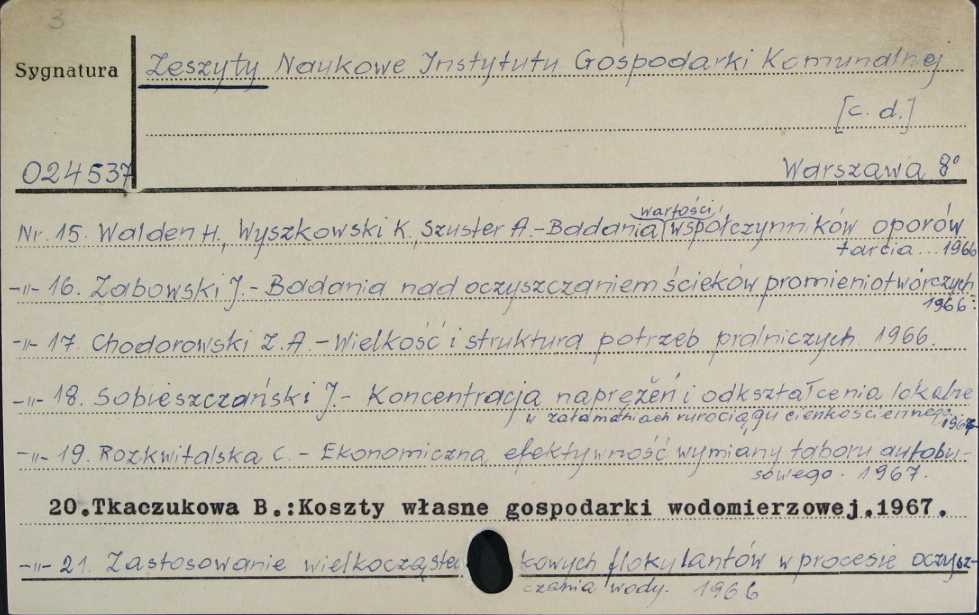 3
Sygnatura
Zeszyty Naukowe Instytutu Gospodarki Komunalnej
[c. d.]
024537
Warszawa 8°
wartości
Nr. 15. Walden H., Wyszkowski K., Szuster A.-Badania współczynników oporów
tarcia... 1966
-„- 16. Zabowski J.- Badania nad oczyszczaniem ścieków promieniotwórczych.
1966.
-„- 17. Chodorowski Z.A.-Wielkość i struktura potrzeb pralniczych. 1966.
-„- 18. Sobieszczański J.- Koncentracja naprężeń i odkształcenia lokalne
w załamaniach rurociągu cienkościennego. 1967
-„- 19. Rozkwitalska C. - Ekonomiczna efektywność wymiany taboru autobu-
sowego. 1967.
20.Tkaczukowa B.:Koszty własne gospodarki wodomierzowej.1967.
-„- 21. Zastosowanie wielkocząste kowych flokulantów w procesie oczysz-
czania wody. 1966